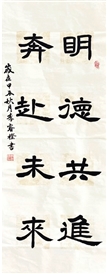 明德共進
奔赴未來
歲在甲辰秋月
書